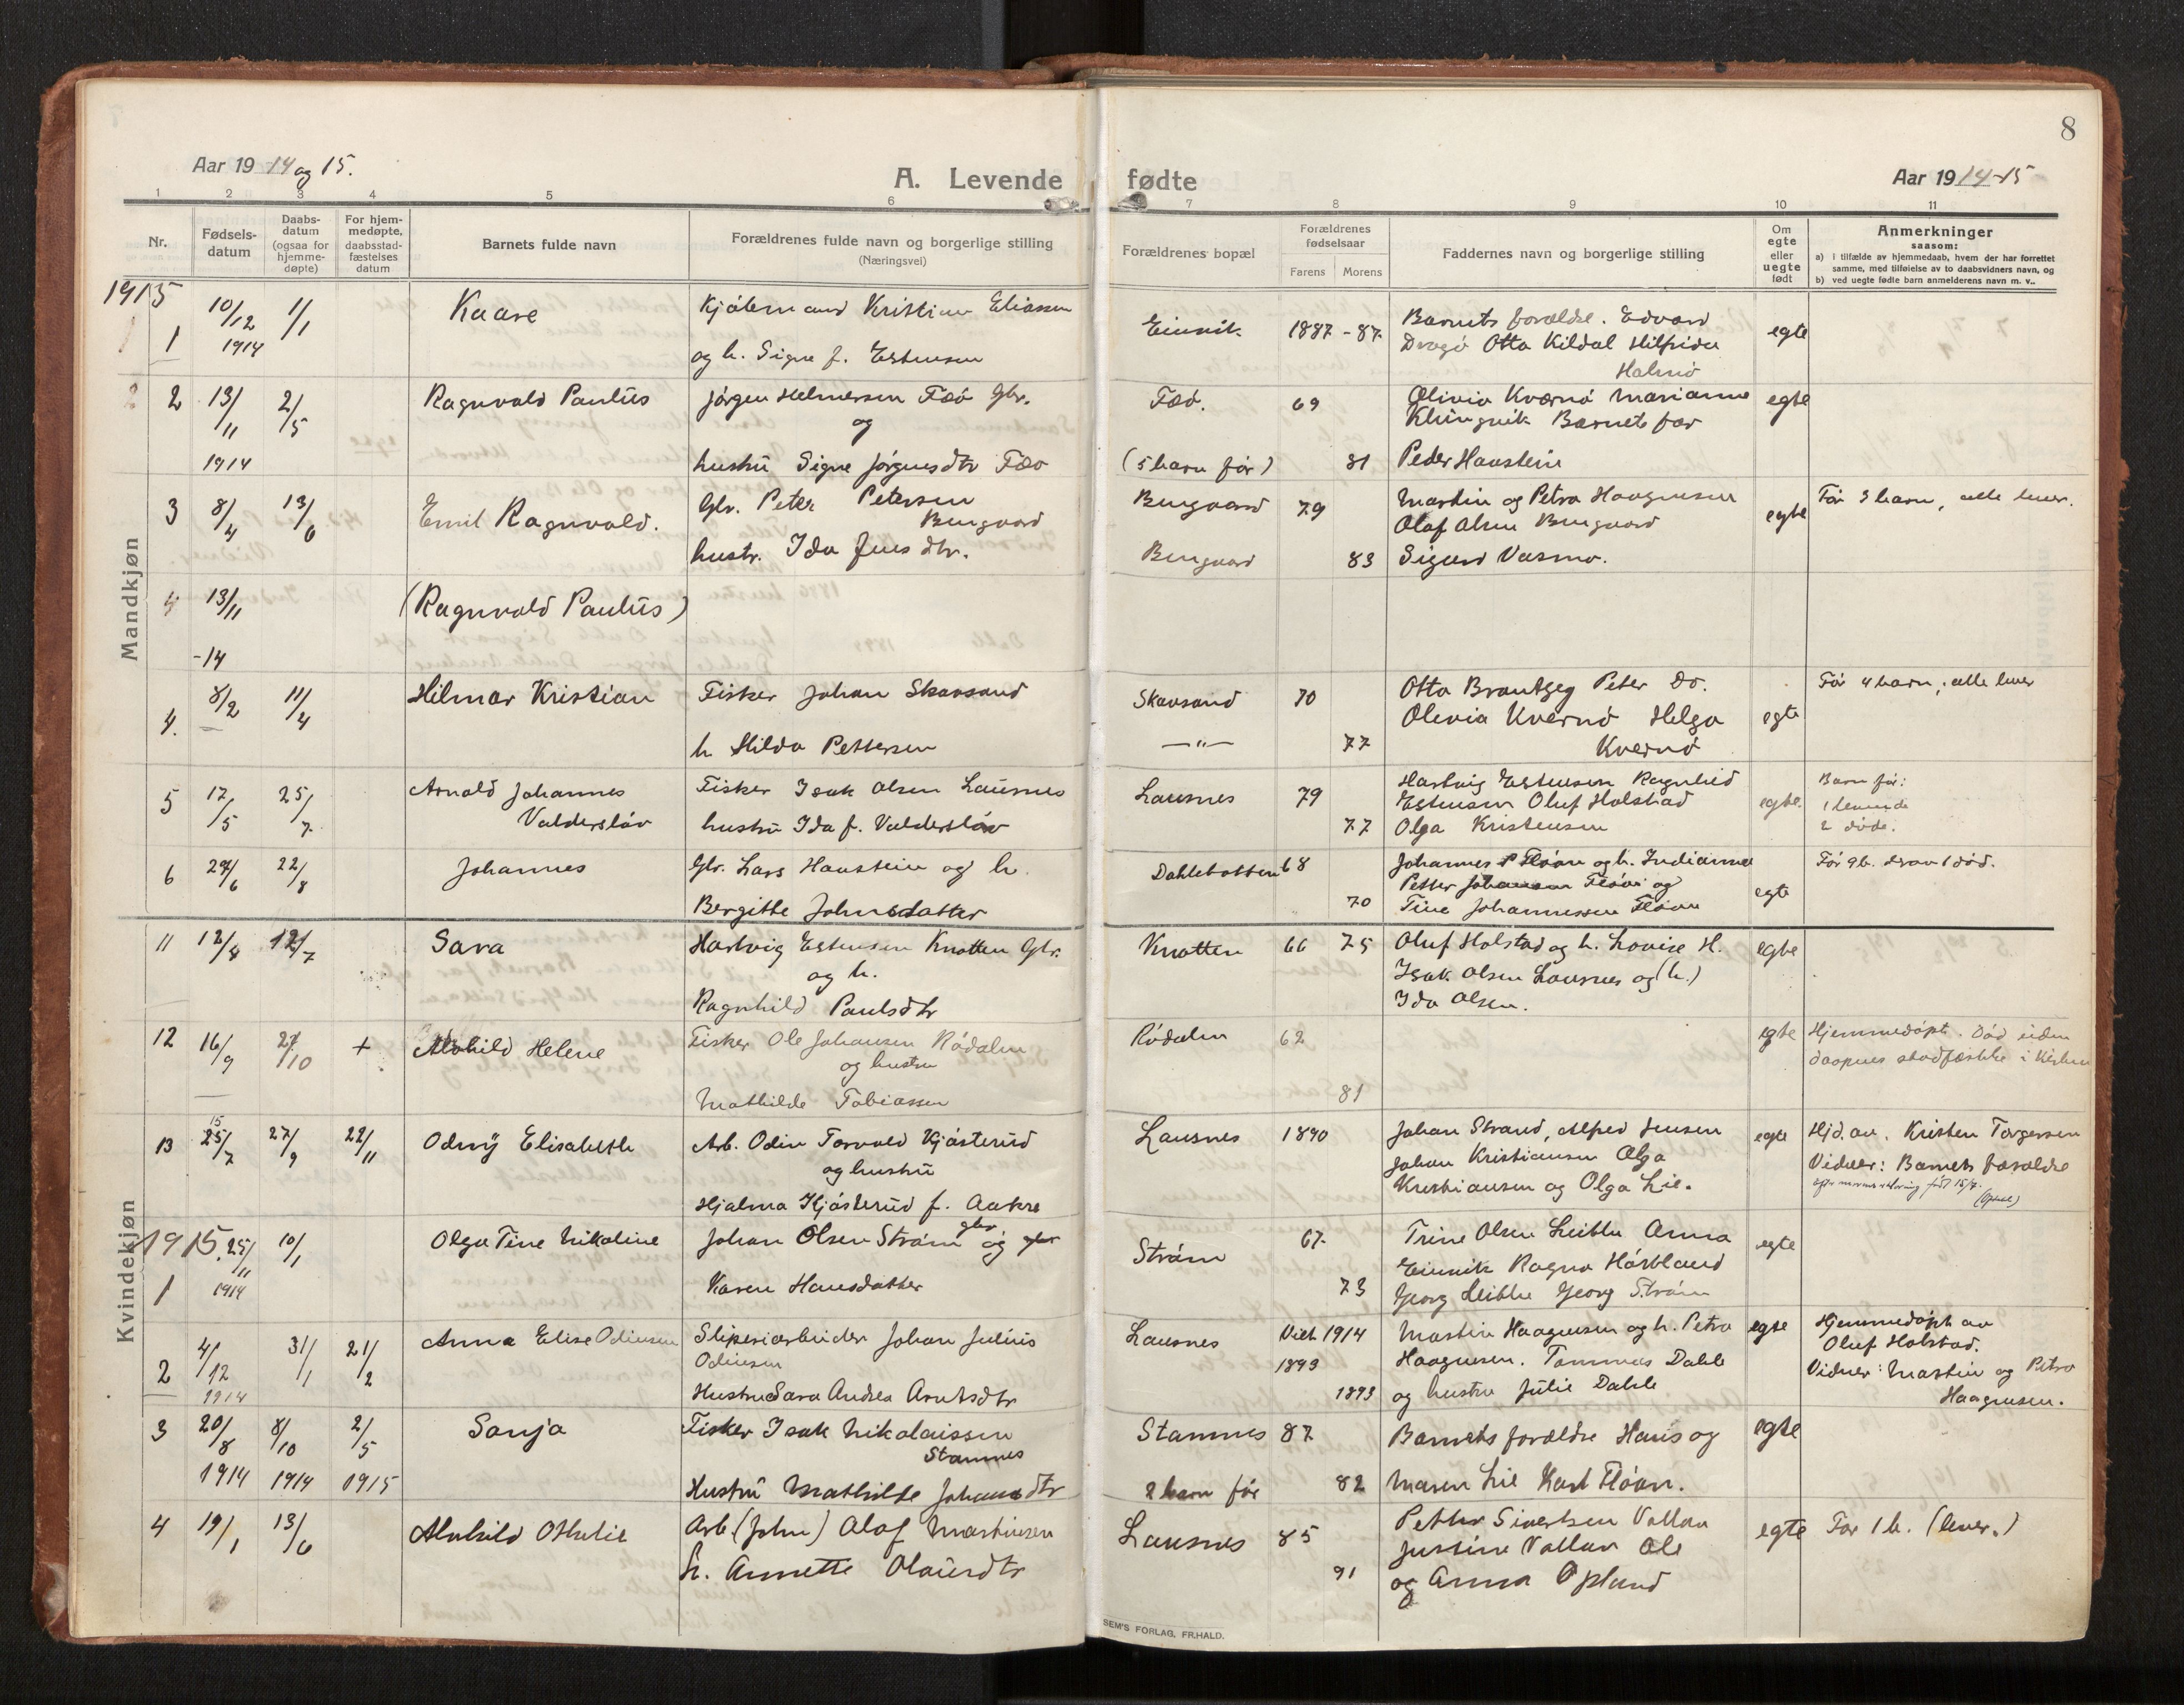 8
Aar 19 14 og 15.
A. Levende fødte
Aar 19 14-15
1 2 3 4 5 6 7 8 9 10 11
Nr.
Fødsels-
datum
Daabs-
datum
(ogsaa for
hjemme-
døpte)
For hjem-
medøpte,
daabsstad-
fæstelses
datum
Barnets fulde navn
Forældrenes fulde navn og borgerlige stilling
(Næringsvei)
Forældrenes bopæl
Forældrenes
fødselsaar
Farens Morens
Faddernes navn og borgerlige stilling
Om
egte
eller
uegte
født
Anmerkninger
saasom:
a) i tilfælde av hjemmedaab, hvem der har forrettet
samme, med tilføielse av to daabsvidners navn, og
b) ved uegte fødte barn anmelderens navn m. v..
Mandkjøn
1915
1 10/12 1/1 Kaare Kristian Eliassen Einvik 1887 - 87. Barnets forældre. Edvard egte
1914 Otto Kildal
og h. Signe f. Estensen
2 13/11 2/5 Ragnvald Paulus Jørgen Helmersen Fæø Gbr. Fæø. 69 Olivia Kværnø Marianne egte
og Klingvik Barnets far
1914 hustru Signe Jørgensdtr Fæø (5 barn før) 81 Peder Haustein
3 8/4 13/6 Emil Ragnvald. Gbr. Peter Petersen Bungaard 79 Martin og Petra Haagensen egte Før 3 barn, alle lever.
Bungaard Olaf Olsen Bungaard
hustr. Ida Jensdtr. Bungaard 83 Sigurd Vasmo.
4 13/11 (Ragnvald Paulus)
-14
4. 8/2 11/4 Hilmar Kristian Fisker Johan Skavsand Skavsand 70 Otto Brandtzeg Peter do. egte Før 4 barn, alle lever
Olivia Kvernø Helga
h. Hilda Pettersen —"— 77 Kvernø
5 17/5 25/7. Arnold Johannes Fisker Isak Olsen Lausnes Lausnes 79 Hartvig Estensen Ragnhild egte. Barn før:
Valderslöv hustru Ida f. Valderslöv Estensen Oluf Holstad 1 levende
77 Olga Kristensen 2 døde.
6 29/6 22/8 Johannes Gbr. Lars Haustein og h. Dahlebotten 68 Johannes Fløan og h. Indianna egte Før 9 b. drav 1 død.
Petter Johansen Fløan og
Bergitte Johnsdatter 70 Tine Johannessen Fløan
Kvindekjøn
11 12/8 12/7 Sara Hartvig Estensen Knotten Gbr. Knotten 66 75 Oluf Holstad og h. Lovise H. egte
og h. Isak Olsen Lausnes og (h.)
Ragnhild Paulsdtr Ida Olsen.
12 16/9 27/10 + Alvhild Helene Fisker Ole Johansen Rødalen Rødalen 62 egte Hjemmedøpt. Død uden
og hustru daapens stadfæstelse i Kirken
Mathilde Tobiassen 81
13 15 25/7 27/9 22/11 Odny Elisabeth Arb. Odin Torvald Kjøsterud Lausnes 1890 Johan Strand, Alfred Jensen egte Hjd. av. Kristen Torgersen
og hustru Johan Kristiansen Olga Vidner: Barnets forældre
Hjalma Kjøsterud f. Aakre Kristiansen og Olga Lie.
1915. 25/11 10/1 Olga Tine Nikoline Johan Olsen Strøm gbr og Strøm 67. Trine Olsen Leithe Anna egte
Einvik Ragna Hørbland
1 1914 Karen Hansdatter 73 Georg Leithe Georg Strøm
2 4/12 31/1 21/2 Anna Elise Odinsen Sliperiarbeider Johan Julius Lausnes Viet 1914 Martin Haagensen og h. Petra egte Hjemmedøpt av
Odinsen 1893 Haagensen. Tommas Dahle Oluf Holstad.
1914 Hustru Sara Andrea Arntsdtr 1893 og hustru Julie Dahle Vidner: Martin og Petra
Haagensen.
3 20/8 8/10 2/5 Sonja Fisker Isak Nikolaissen Stamnes 87 Barnets forældre Hans og egte
Stamnes
1914 1914 1915 Hustru Mathilde Johansdtr 2 barn før 82 Maren Lie Karl Fløan.
4 19/1 13/6 Alvhild Othelie Arb. (John) Olaf Martinsen Lausnes 85 Petter Sivertsen Vallan egte Før 1 b. (lever.)
Justine Vallan Ole
h. Annette Olausdtr 91 og Anna Opland
SEM'S FORLAG, FR.HALD.